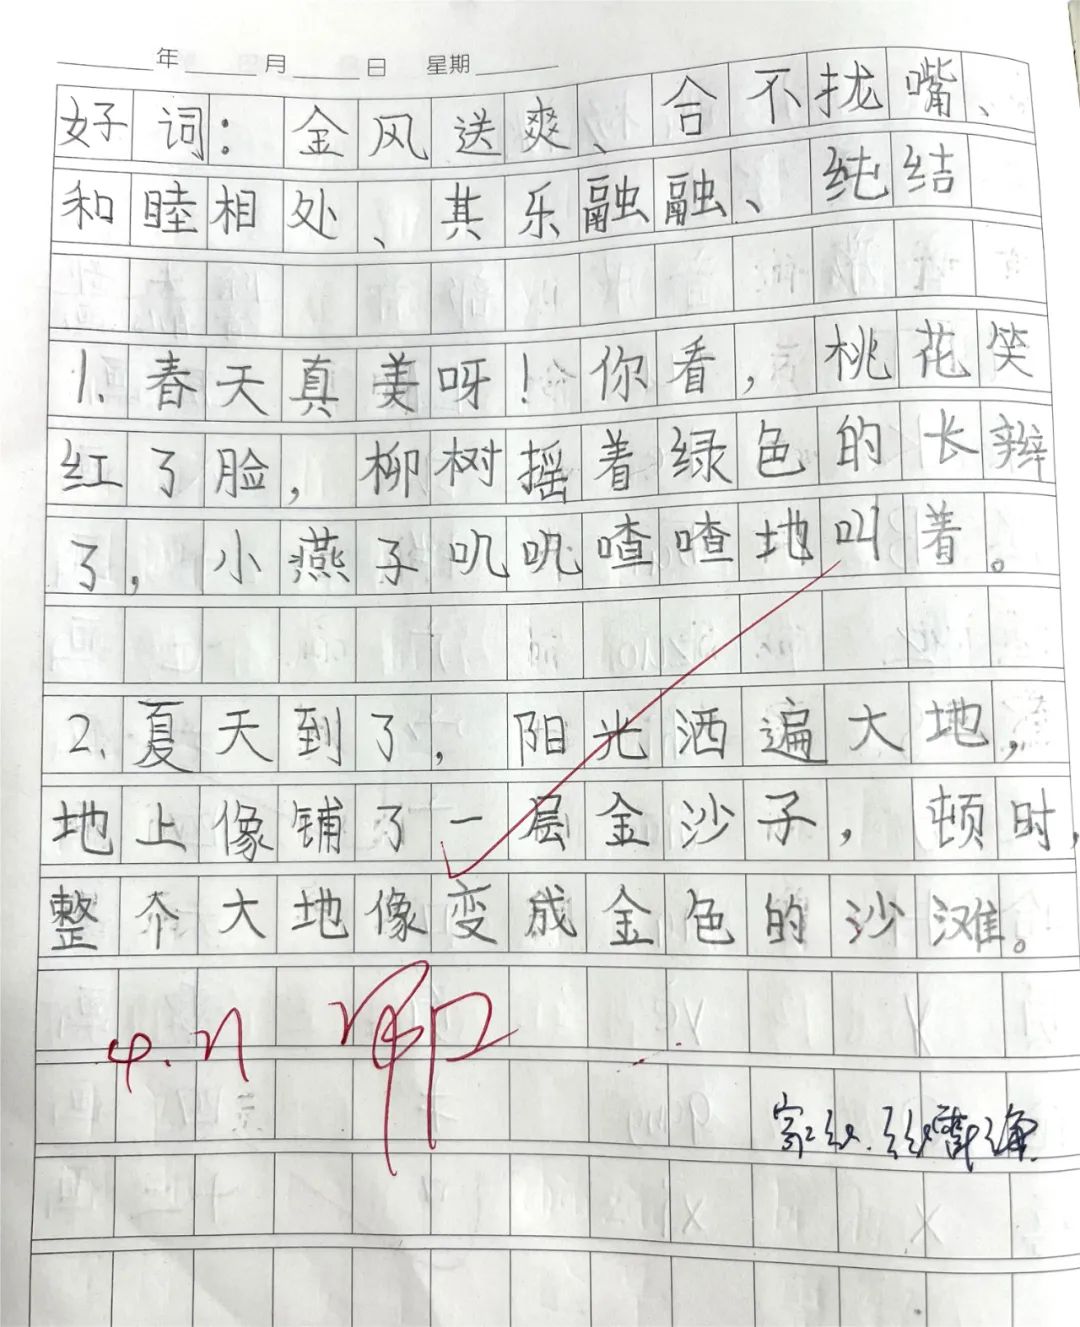 年 月 日 星期
好词：金风送爽、合不拢嘴、
和睦相处、其乐融融、纯结
1.春天真美呀！你看，桃花笑
红了脸，柳树摇着绿色的长辫
了，小燕子叽叽喳喳地叫着。
2.夏天到了，阳光洒遍大地，
地上像铺了一层金沙子，顿时，
整个大地像变成金色的沙滩。